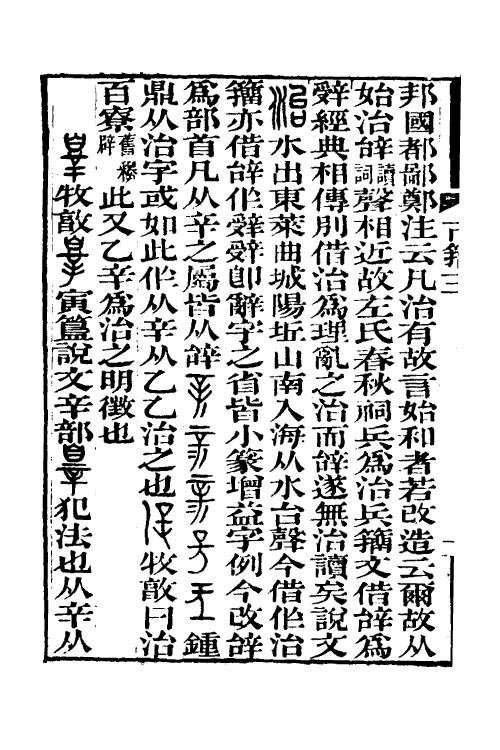 邦國都鄙鄭注云凡治有故言始和者若改造云爾故从
始治辝讀詞聲相近故左氏春秋祠兵爲治兵籒文借辝爲
辤經典相傳別借治爲理亂之治而辝遂無治讀矣說文
治水出東萊曲城陽丘山南入海从水台聲今借作治
籒亦借辝作辤辤卽辭字之省皆小篆增益字例今改辝
爲部首凡从辛之屬皆从辝 鍾
鼎从治字或如此作从辛从乙乙治之也 牧敦曰治
百寮舊釋辟此又乙辛爲治之明徵也
牧敦 寅簋說文辛部辠犯法也从辛从
古籒三